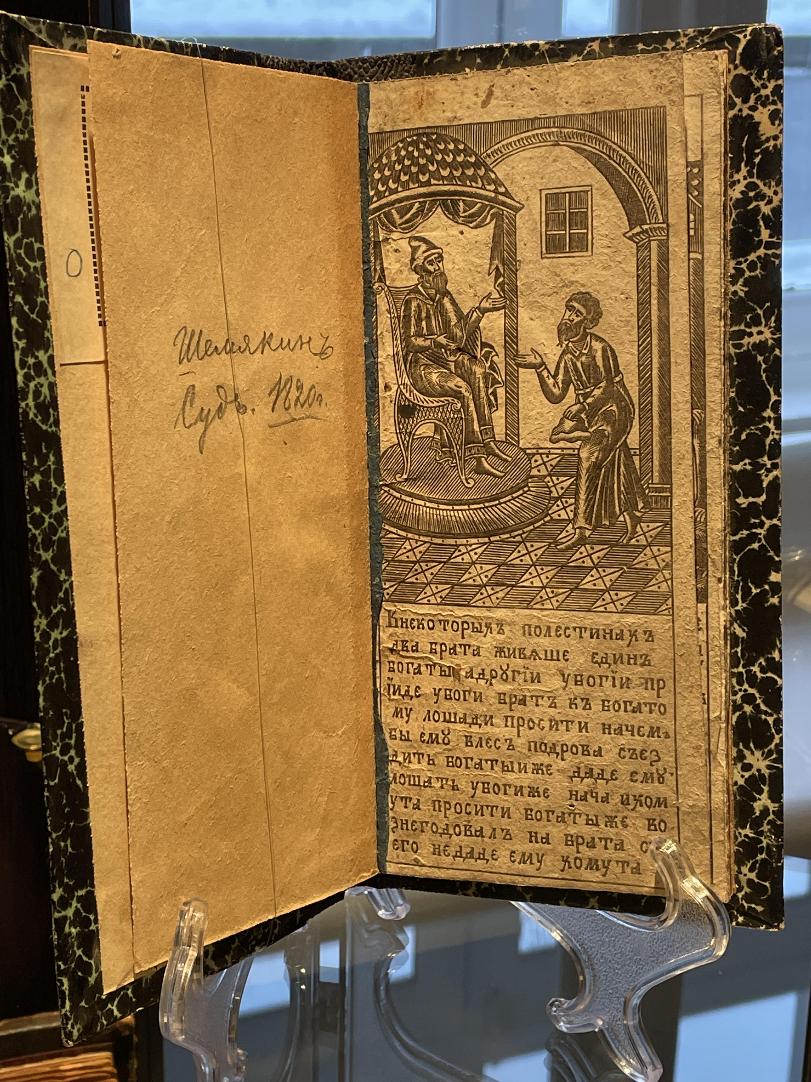 О
Шемякинъ
Судъ. 1820г.
Внѣкоторыхъ полестинахъ
два брата живяше единъ
богаты адрꙋгїи ꙋвогїи пр
їиде ꙋбоги братъ къ богато
му лошади просити начемъ
бы емꙋ влесъ подрова съез
дить богатыиже даде емꙋ
лошать ꙋбогиже нача ихом
ута просити богатыже во
знегодовалъ на брата с
его недаде ему хомута